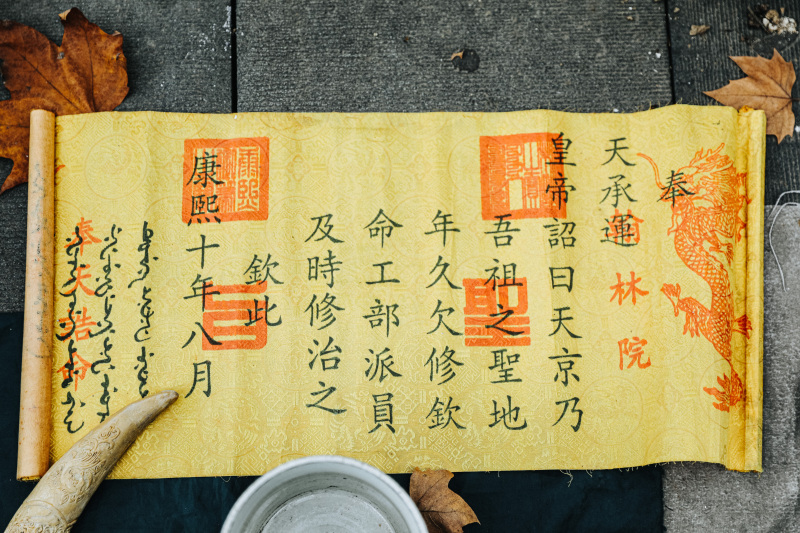 奉
天承運
皇帝詔曰天京乃
吾祖之聖地
年久欠修欽
命工部派員
及時修治之
欽此
康熙十年八月
林院
奉天誥命